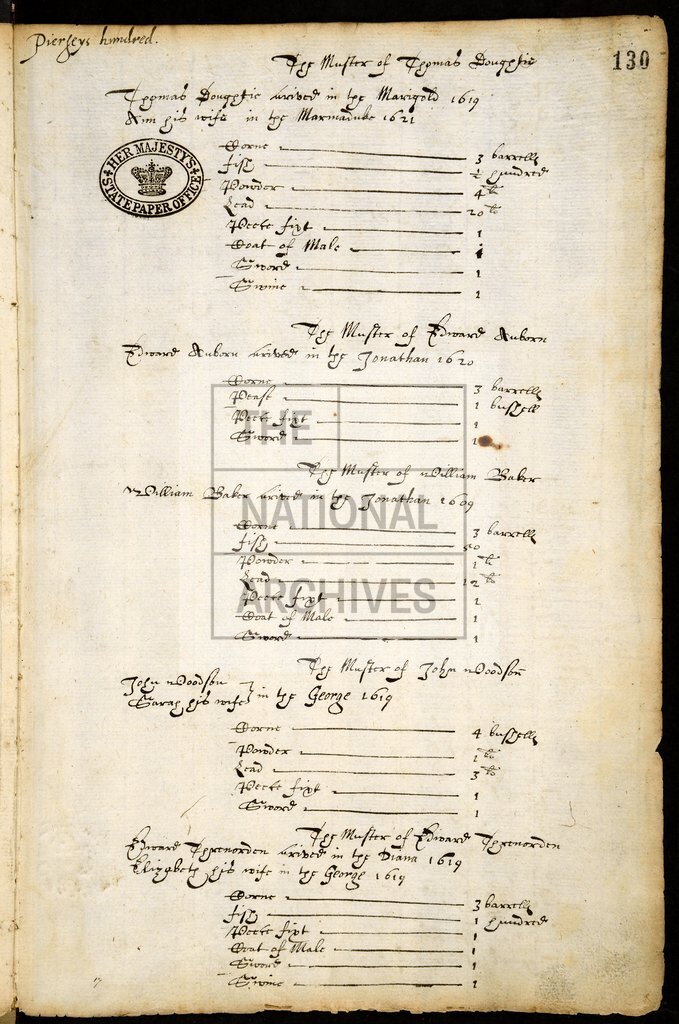 Pierseys hundred.
130
The Muster of Thomas Doughtie
Thomas Doughtie arived in the Marigold 1619
Ann his wife in the Marmaduke 1621
HER MAJESTY'S
STATE PAPER OFFICE
Corne 3 barrells
fish ½ hundred
Powder 4 lb
Lead 20 lb
Peece fixt 1
Coat of Male 1
Sword 1
Swine 1
The Muster of Edward Auborn
Edward Auborn arived in the Jonathan 1620
Corne 3 barrells
Pease 1 bushell
Peece fixt 1
Sword 1
The Muster of William Baker
William Baker arived in the Jonathan 1609
Corne 3 barrells
fish 50
Powder 1 lb
Lead 12 lb
Peece fixt 1
Coat of Male 1
Sword 1
THE
NATIONAL
ARCHIVES
The Muster of John Woodson
John Woodson
Sarah his wife in the George 1619
Corne 4 bushells
Powder 1 lb
Lead 3 lb
Peece fixt 1
Sword 1
The Muster of Edward Threnorden
Edward Threnorden arived in the Diana 1619
Elizabeth his wife in the George 1619
Corne 3 barrells
fish 1 hundred
Peece fixt 1
Coat of Male 1
Sword 1
Swine 1